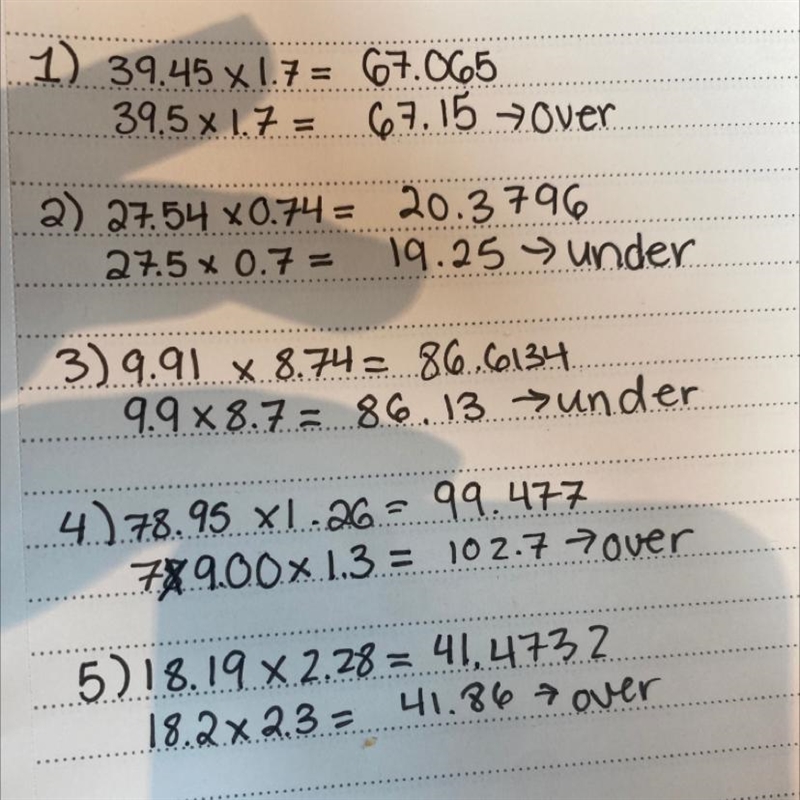 1) 39.45 x 1.7 = 67.065
39.5 x 1.7 = 67.15 → over
2) 27.54 x 0.74 = 20.3796
27.5 x 0.7 = 19.25 → under
3) 9.91 x 8.74 = 86.6134
9.9 x 8.7 = 86.13 → under
4) 78.95 x 1.26 = 99.477
79.00 x 1.3 = 102.7 → over
5) 18.19 x 2.28 = 41.4732
18.2 x 2.3 = 41.86 → over